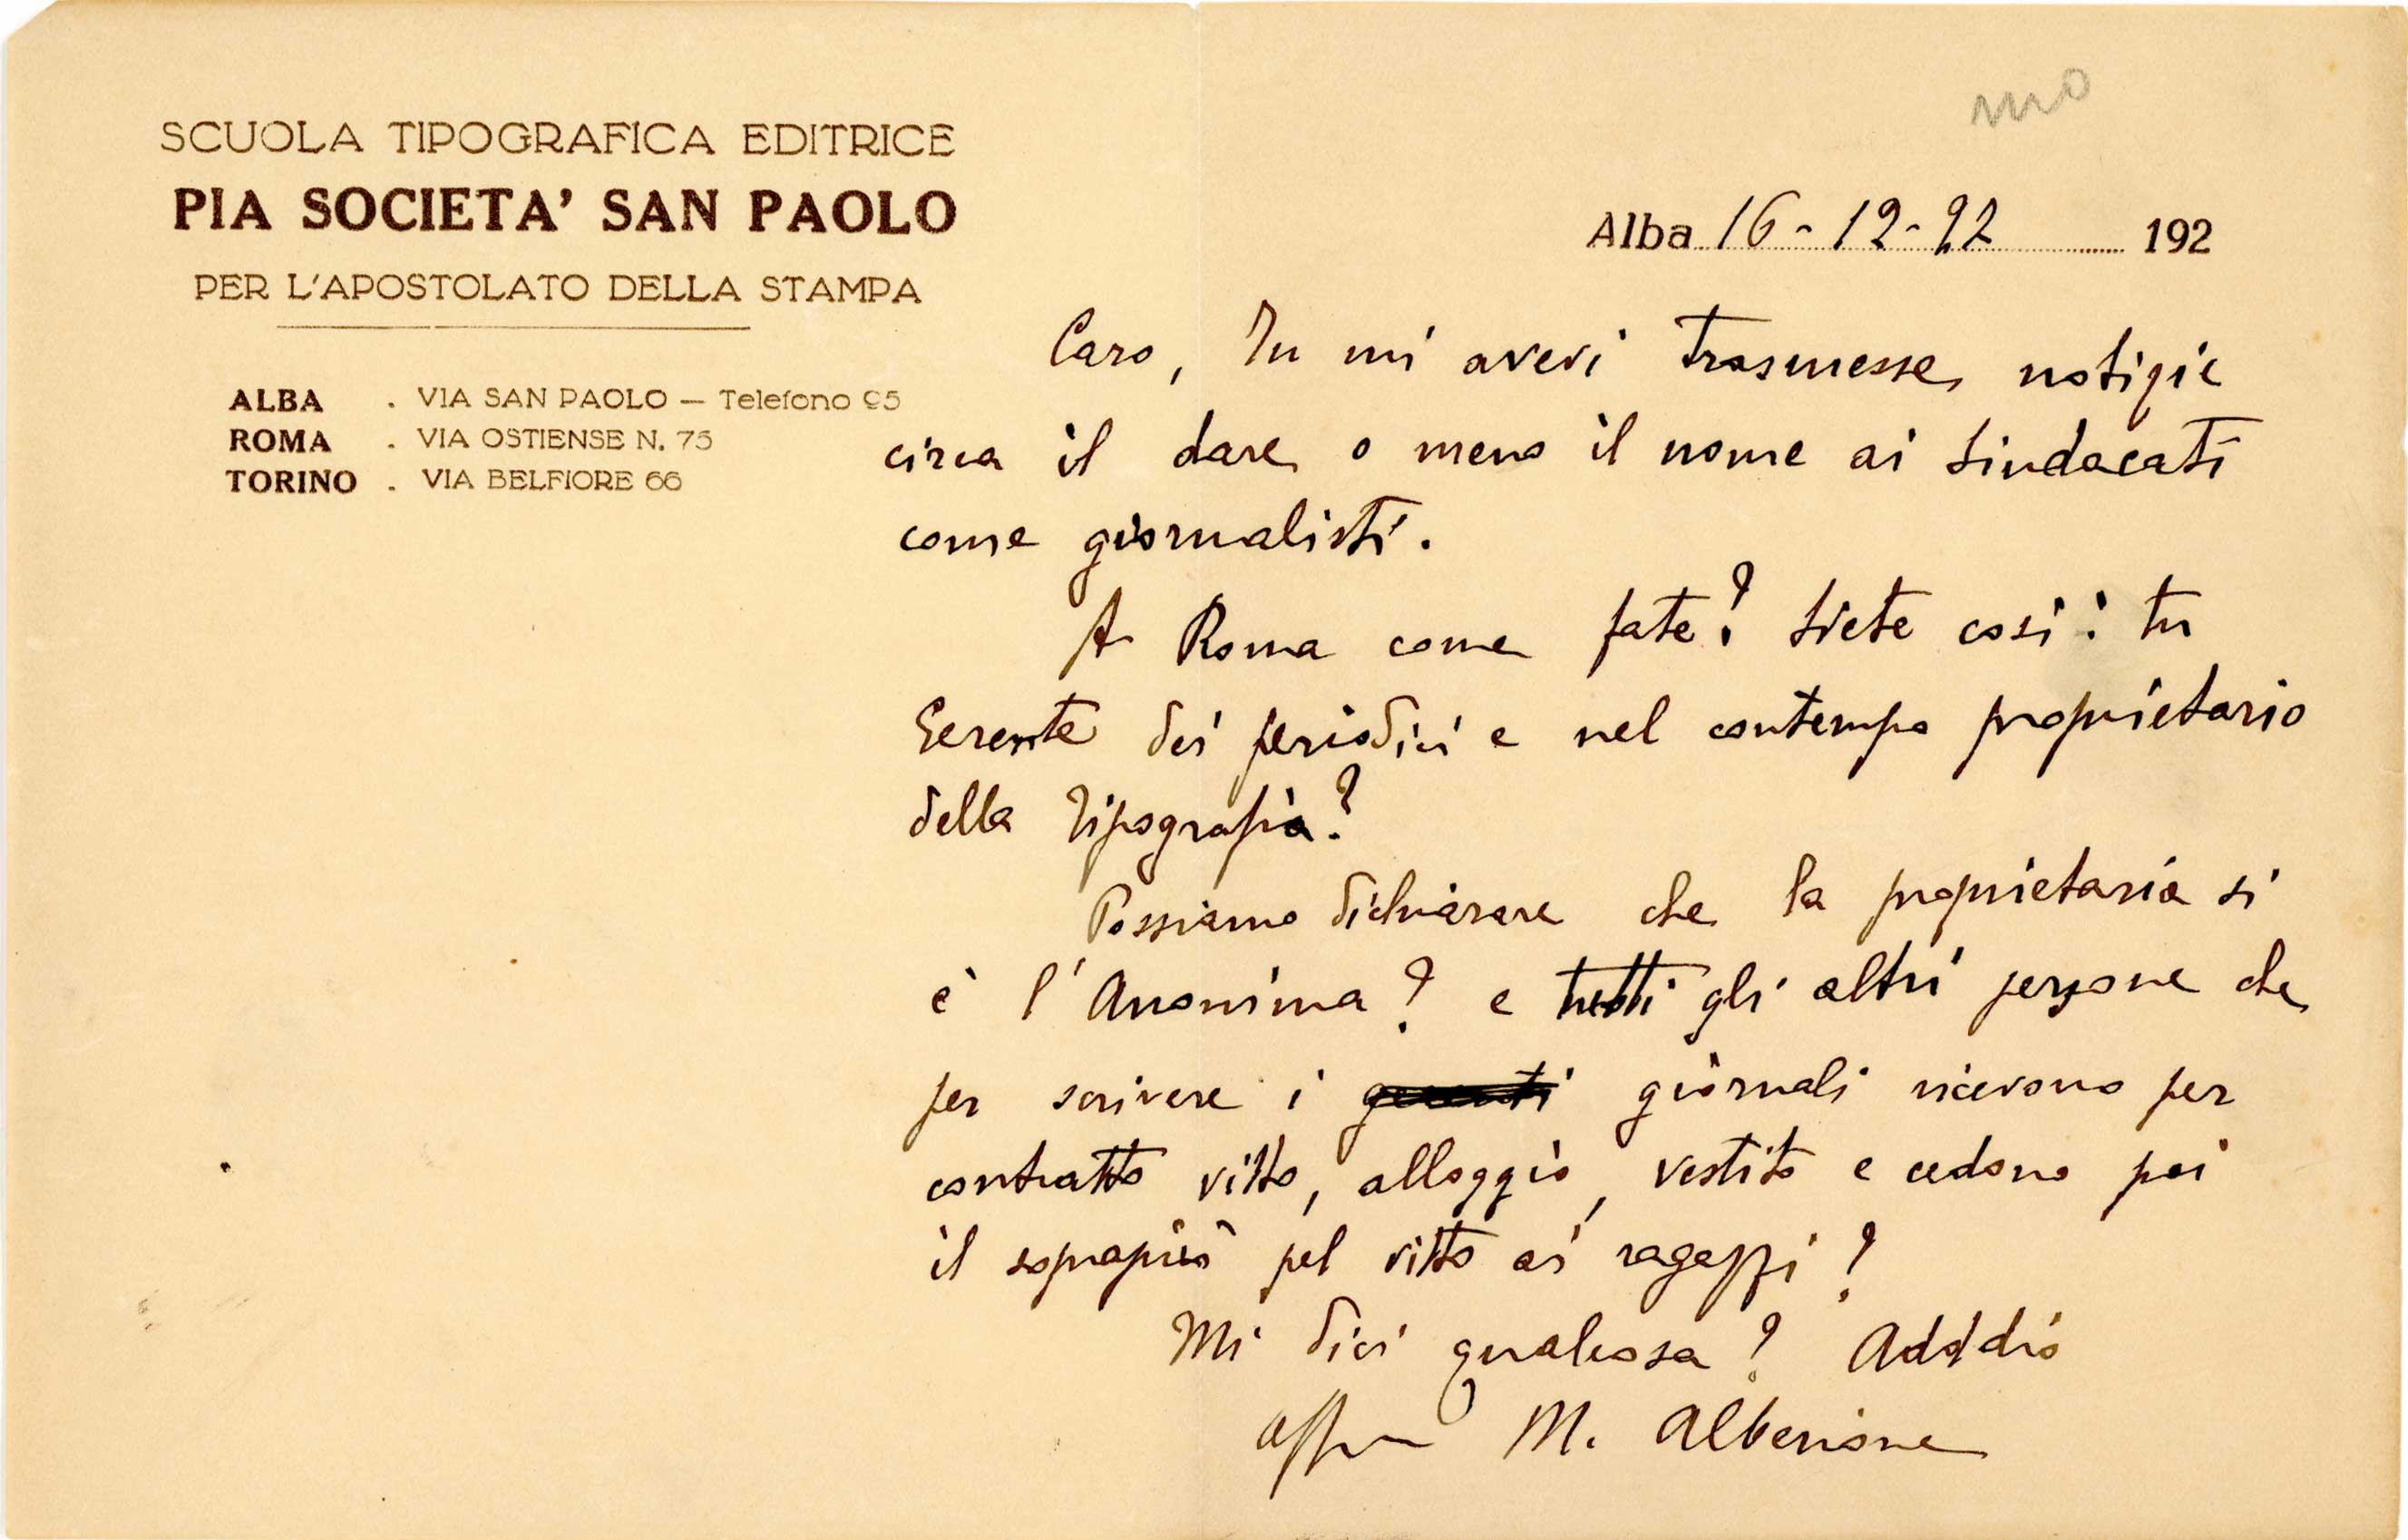 mo
SCUOLA TIPOGRAFICA EDITRICE
PIA SOCIETA' SAN PAOLO
PER L'APOSTOLATO DELLA STAMPA
ALBA . VIA SAN PAOLO — Telefono 95
ROMA . VIA OSTIENSE N. 75
TORINO . VIA BELFIORE 66
Alba 16-12-22 192
Caro, Tu mi avevi trasmesse notizie
circa il dare o meno il nome ai Sindacati
come giornalisti.
A Roma come fate? Siete così: tu
Gerente dei periodici e nel contempo proprietario
della Tipografia?
Possiamo dichiarare che la proprietaria si
è l'Anonima? e tutti gli altri persone che
per scrivere i gerenti giornali ricevono per
contratto vitto, alloggio, vestito e cedono poi
il soprapiù pel vitto ai ragazzi?
Mi dici qualcosa? Adddio
aff M. Alberione